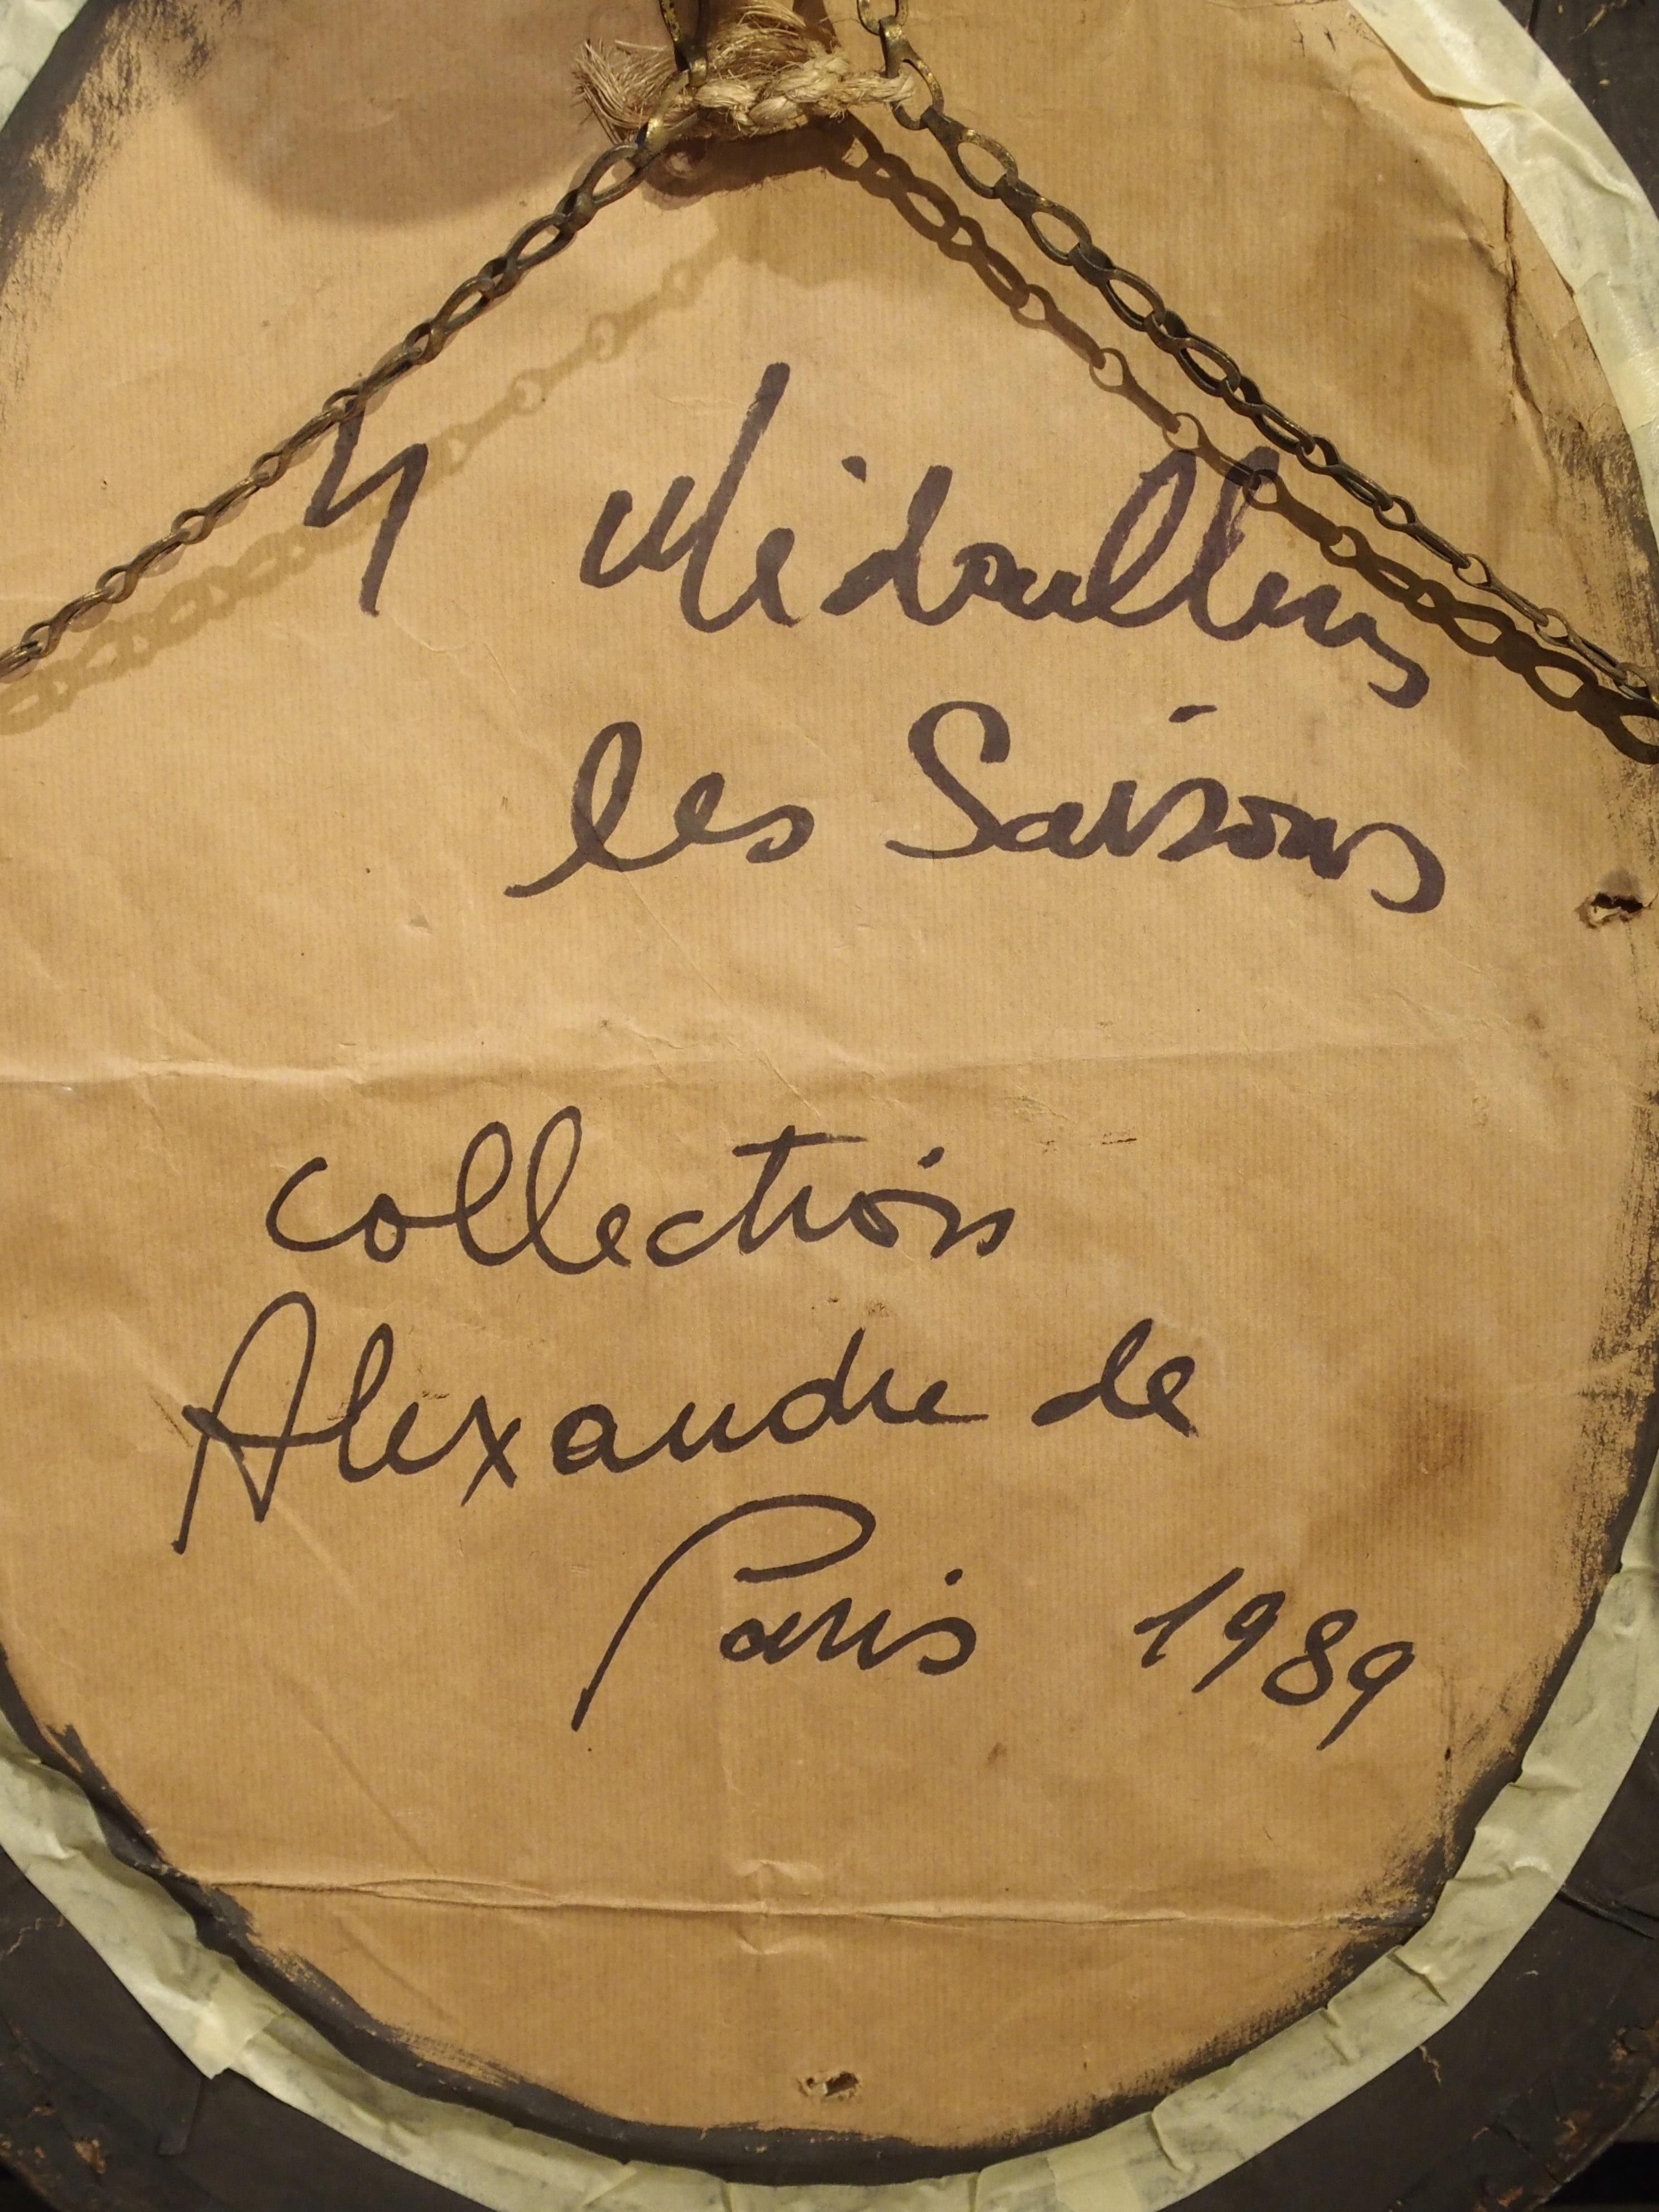 4 Médaillons
les Saisons
collection
Alexandre de
Paris 1989